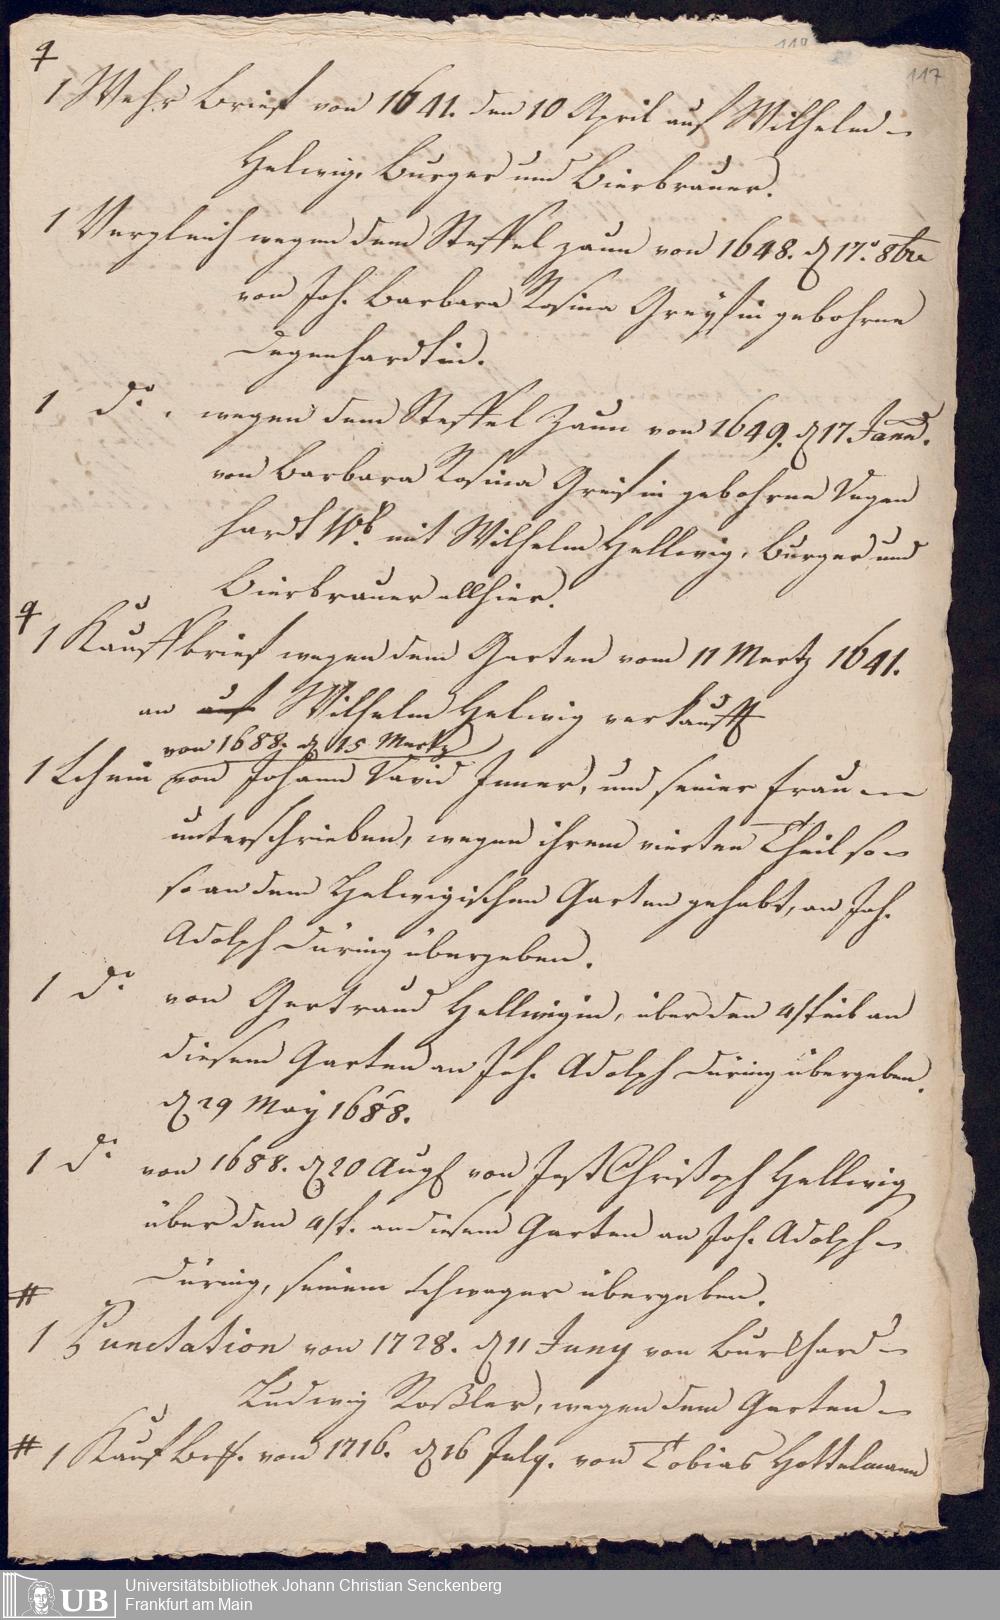 117
1 Wehr Brief von 1641. den 10 April auf Wilhelm
Helwig, Burger und Bierbrauer.
1 Vergleich wegen dem Steffel zaun von 1648. d 17. 8bre
von Joh. Barbara Rosina Greysin gebohrne
Degenhardtin.
1 do. wegen dem Steffel Zaun von 1649. d 17 Janu.
von Barbara Rosina Greisin gebohrne Degen
hardt mit Wilhelm Hellwig, Burger und
Bierbrauer allhier.
1 Kauffbrief wegen dem Garten vom 11 Mertz 1641.
an auf Wilhelm Helwig verkaufft
von 1688. d 15 Mertz
1 Schein von Johann David Inner, und seiner frau
unterschrieben, wegen ihrem vierten Theil so
so an dem Helwigischen Garten gehabt, an Joh.
Adolph Düring übergeben.
1 do von Gertraud Hellwigin, über den 4ten theil an
diesem Garten an Joh. Adolph Düring übergeben.
d 29 May 1688.
1 do von 1688. d 20 Aug von Jost Christoph Hellwig
über den 4t. an diesem Garten an Joh. Adolph
Düring, seinem Schwager übergeben.
1 Punctation von 1728. d 11 Juny von Burkhard
Ludwig Roßler, wegen dem Garten
1 Kauf Brff. von 1716. d 16 July. von Tobias Hottelmann
UB Universitätsbibliothek Johann Christian Senckenberg
Frankfurt am Main